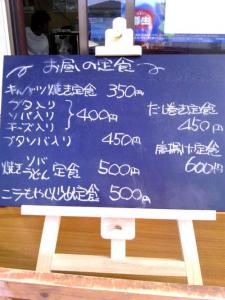 お昼の定食
キャベツ焼き定食 350円
ブタ入り
ソバ入り
チーズ入り
400円
ブタソバ入り 450円
焼き ソバ うどん 定食 500円
ニラもやし炒め定食 500円
だし巻き定食
450円
唐揚げ定食
600円